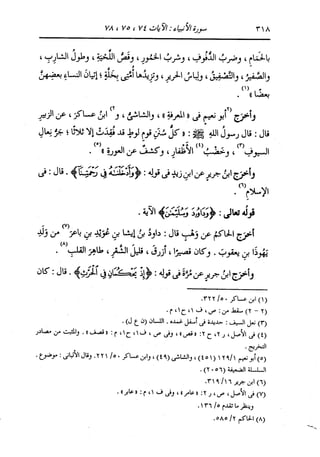 ٣١٨ سورة الأنبياء : الآيات ٧٤ ، ٧٥ ، ٧٨
بالحَمامِ ، وضربُ الدُّفوفِ ، وشربُ الخُمورِ ، وقصُّ اللِّحيةِ ، وطولُ الشاربِ ،
والصَّفيرُ ، والتَّصفيقُ ، ولباسُ الحريرِ ، وتَزِيدُها أُمَّتى بخَلَّةٍ ؛ إتيانُ النساءِ بعضِهنَّ
بعضًا » (١) .
وأخرَج (٢) أبو نعيم فى « المعرفة » ، والشاشى ، و (٢) ابنُ عساكرَ ، عن الزبيرِ
قال : قال رسولُ اللهِ ﷺ : « كلُّ سُننِ قومِ لوطٍ قد فُقِدَت إلا ثلاثًا ؛ جرُّ نِعالِ
السيوفِ (٣) ، وخَضْبُ (٤) الأظفارِ ، وكشفٌ عن العورةِ » (٥) .
وأخرَج ابنُ جريرٍ عن ابنِ زيدٍ فى قولِه : ﴿وَأَدْخَلْنَـٰهُ فِى رَحْمَتِنَآ﴾ . قال : فى
الإسلامِ (٦) .
قولُه تعالى : ﴿وَدَاوُۥدَ وَسُلَيْمَـٰنَ﴾ الآية .
وأخرَج الحاكمُ عن وهبٍ قال : داودُ بنُ إيشا بنِ عُوَيْدِ بنِ باعزَ (٧) من ولدِ
يهوذا بنِ يعقوبَ . وكان قصيرًا ، أزرقَ ، قليلَ الشَّعَرِ ، طاهرَ القلبِ (٨) .
وأخرَج ابنُ جريرٍ عن مُرَّةَ فى قولِه : ﴿إِذْ يَحْكُمَانِ فِى ٱلْحَرْثِ﴾ . قال : كان
(١) ابن عساكر ٥٠/ ٣٢٢.
(٢ - ٢) سقط من : ص ، ف ١ ، ح ١ ، م .
(٣) نعل السيف : حديدة فى أسفل غمده . اللسان (ن ع ل) .
(٤) فى الأصل ، ر ٢ ، ح ٢ : « قص » ، وفى ص ، ف ١ ، ح ١ ، م : « قصف » . والمثبت من مصادر
التخريج .
(٥) أبو نعيم ١/ ١٢٩ (٤٥١) ، والشاشى (٤٩) ، وابن عساكر ٥٠/ ٢٢١. وقال الألبانى : موضوع .
السلسلة الضعيفة (٢٠٥٦) .
(٦) ابن جرير ١٦/ ٣١٩.
(٧) فى الأصل ، ص ، ر ٢ : « عامر » ، وفى ف ١ ، م : « عابر » .
وينظر ما تقدم ٥/ ١٣٦.
(٨) الحاكم ٢/ ٥٨٥.